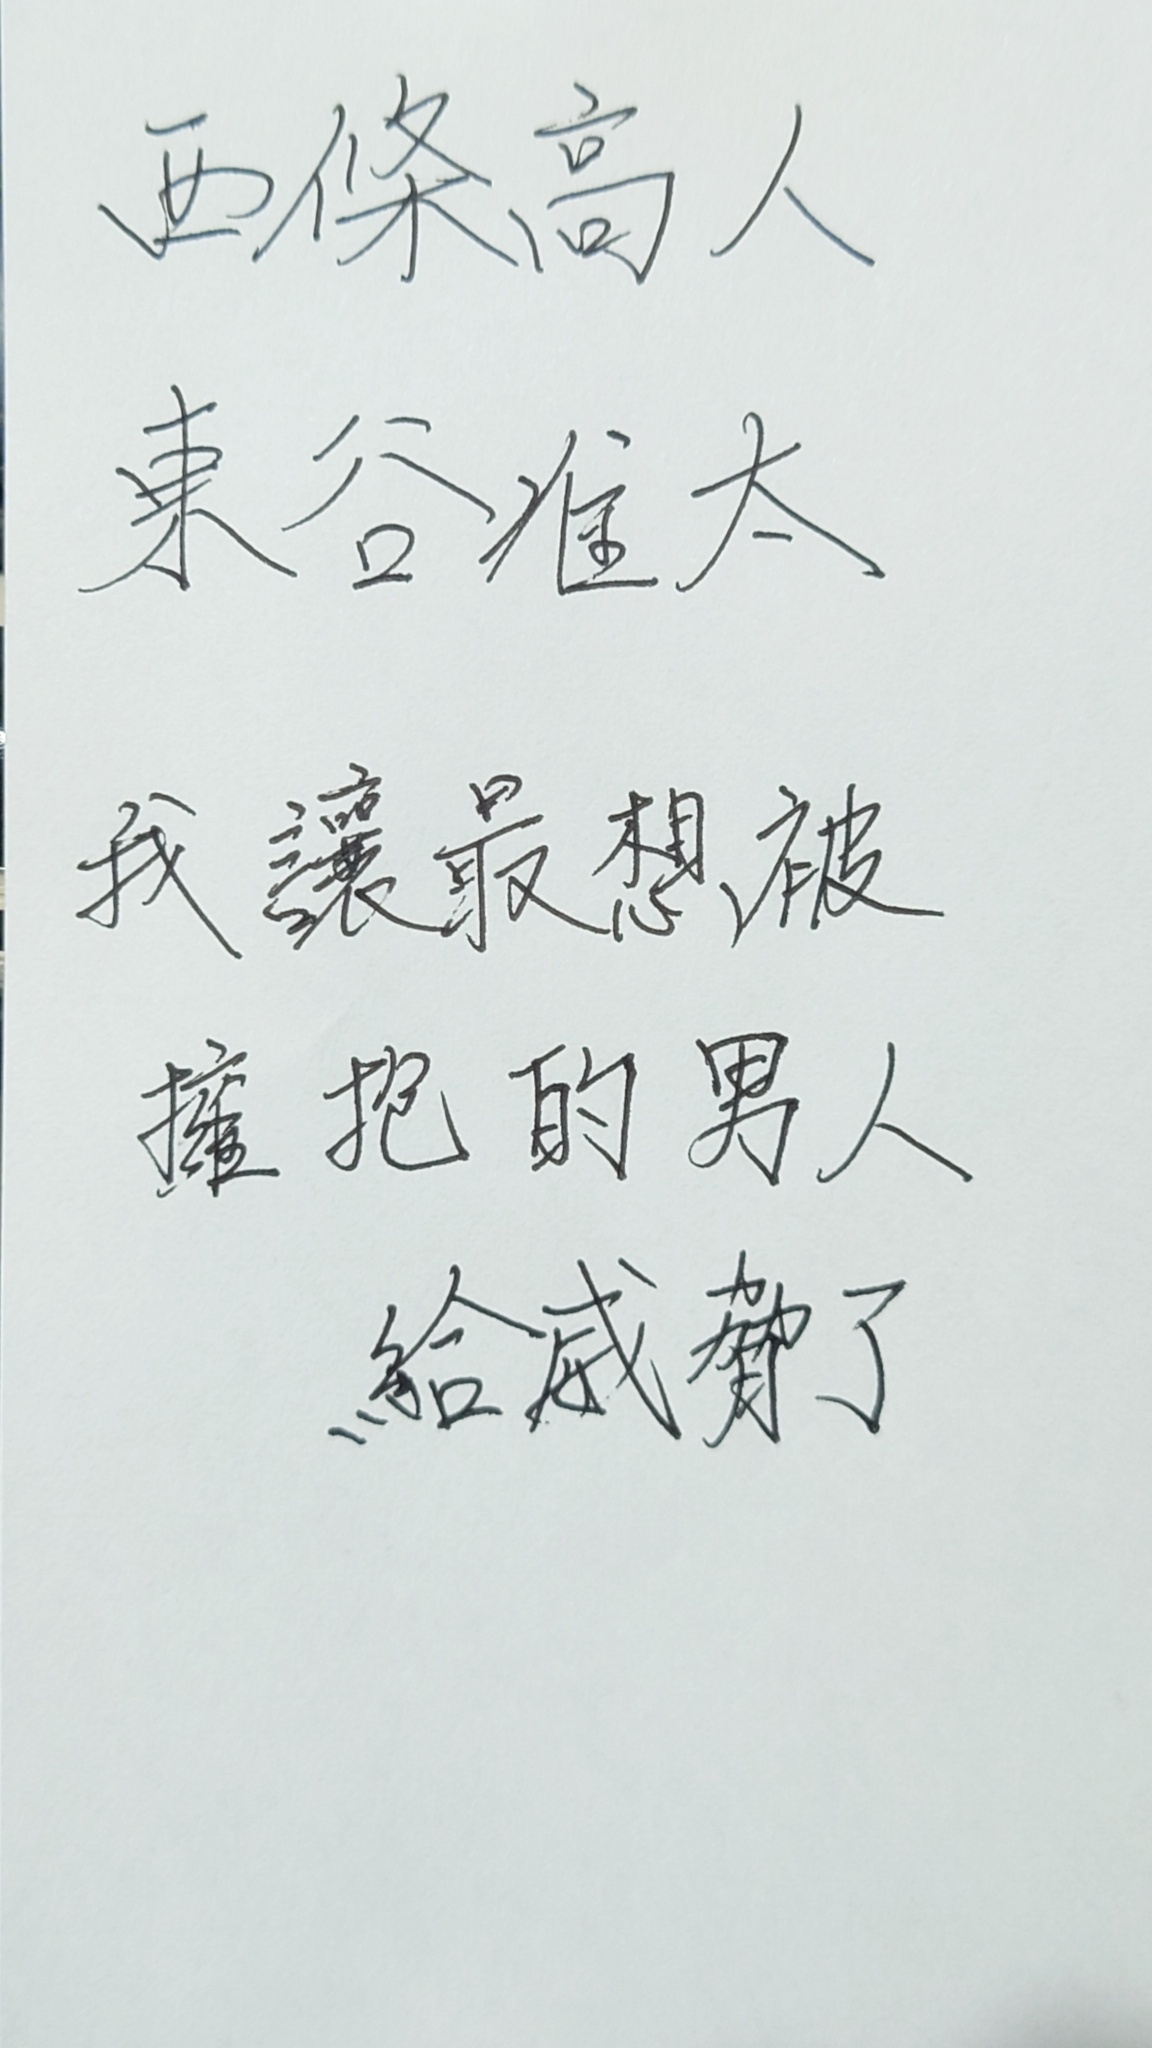 西條高人
東谷准太
我讓最想被
擁抱的男人
給威脅了